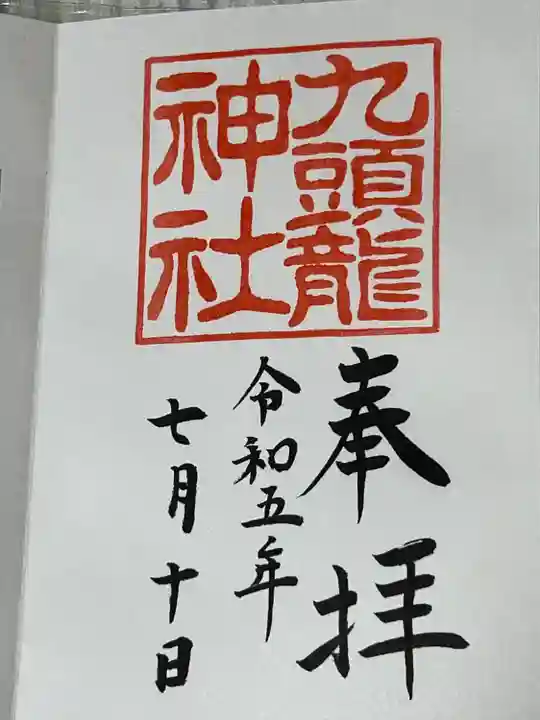 九頭龍
神社
奉拝
令和五年
七月十日